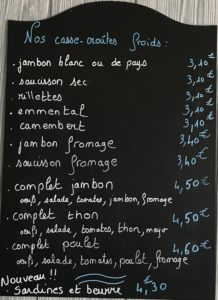 Nos casse-croûtes froids :
. jambon blanc ou de pays 3,10€
. saucisson sec 3,10€
. rillettes 3,10€
. emmental 3,10€
. camembert 3,10€
. jambon fromage 3,40€
. saucisson fromage 3,40€
. complet jambon 4,50€
oeufs, salade, tomates, jambon, fromage
. complet thon 4,50€
oeufs, salade, tomates, thon, mayo
. complet poulet 4,60€
oeufs, salade, tomates, poulet, fromage
Nouveau !!
. Sardines et beurre 4,30€